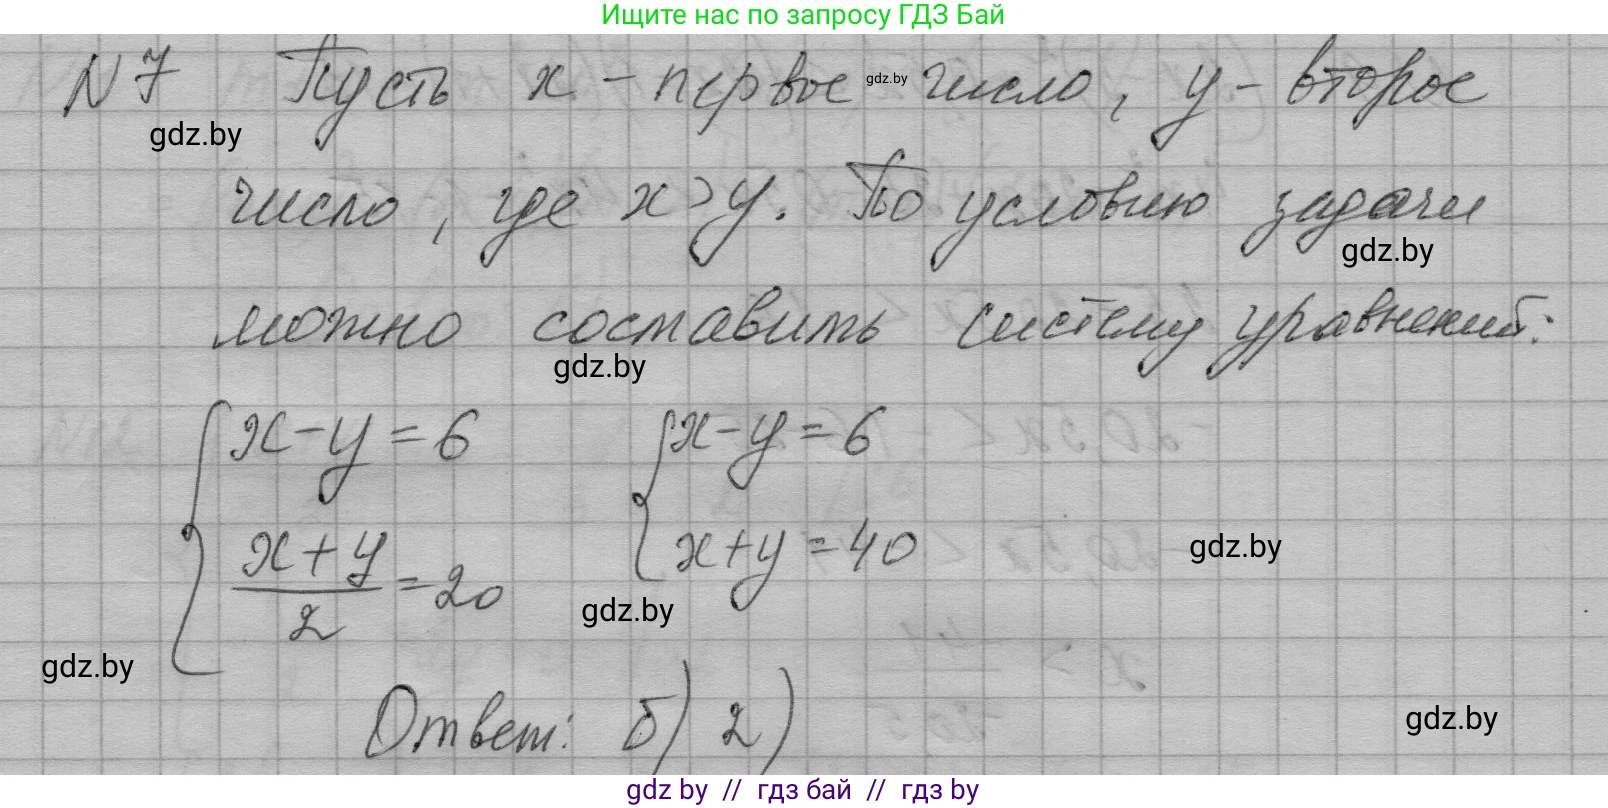 Ищите нас по запросу ГДЗ Бай
N7 Пусть x - первое gdz.by число, y - второе
gdz.by
число, где x > y. По условию задачи
gdz.by
можно составить систему уравнений:
gdz.by
{ x - y = 6 { x - y = 6
(x + y)/2 = 20 x + y = 40
gdz.by
gdz.by
gdz.by
Ответ: б) 2)
gdz.by
gdz by // гдз бай // гдз by